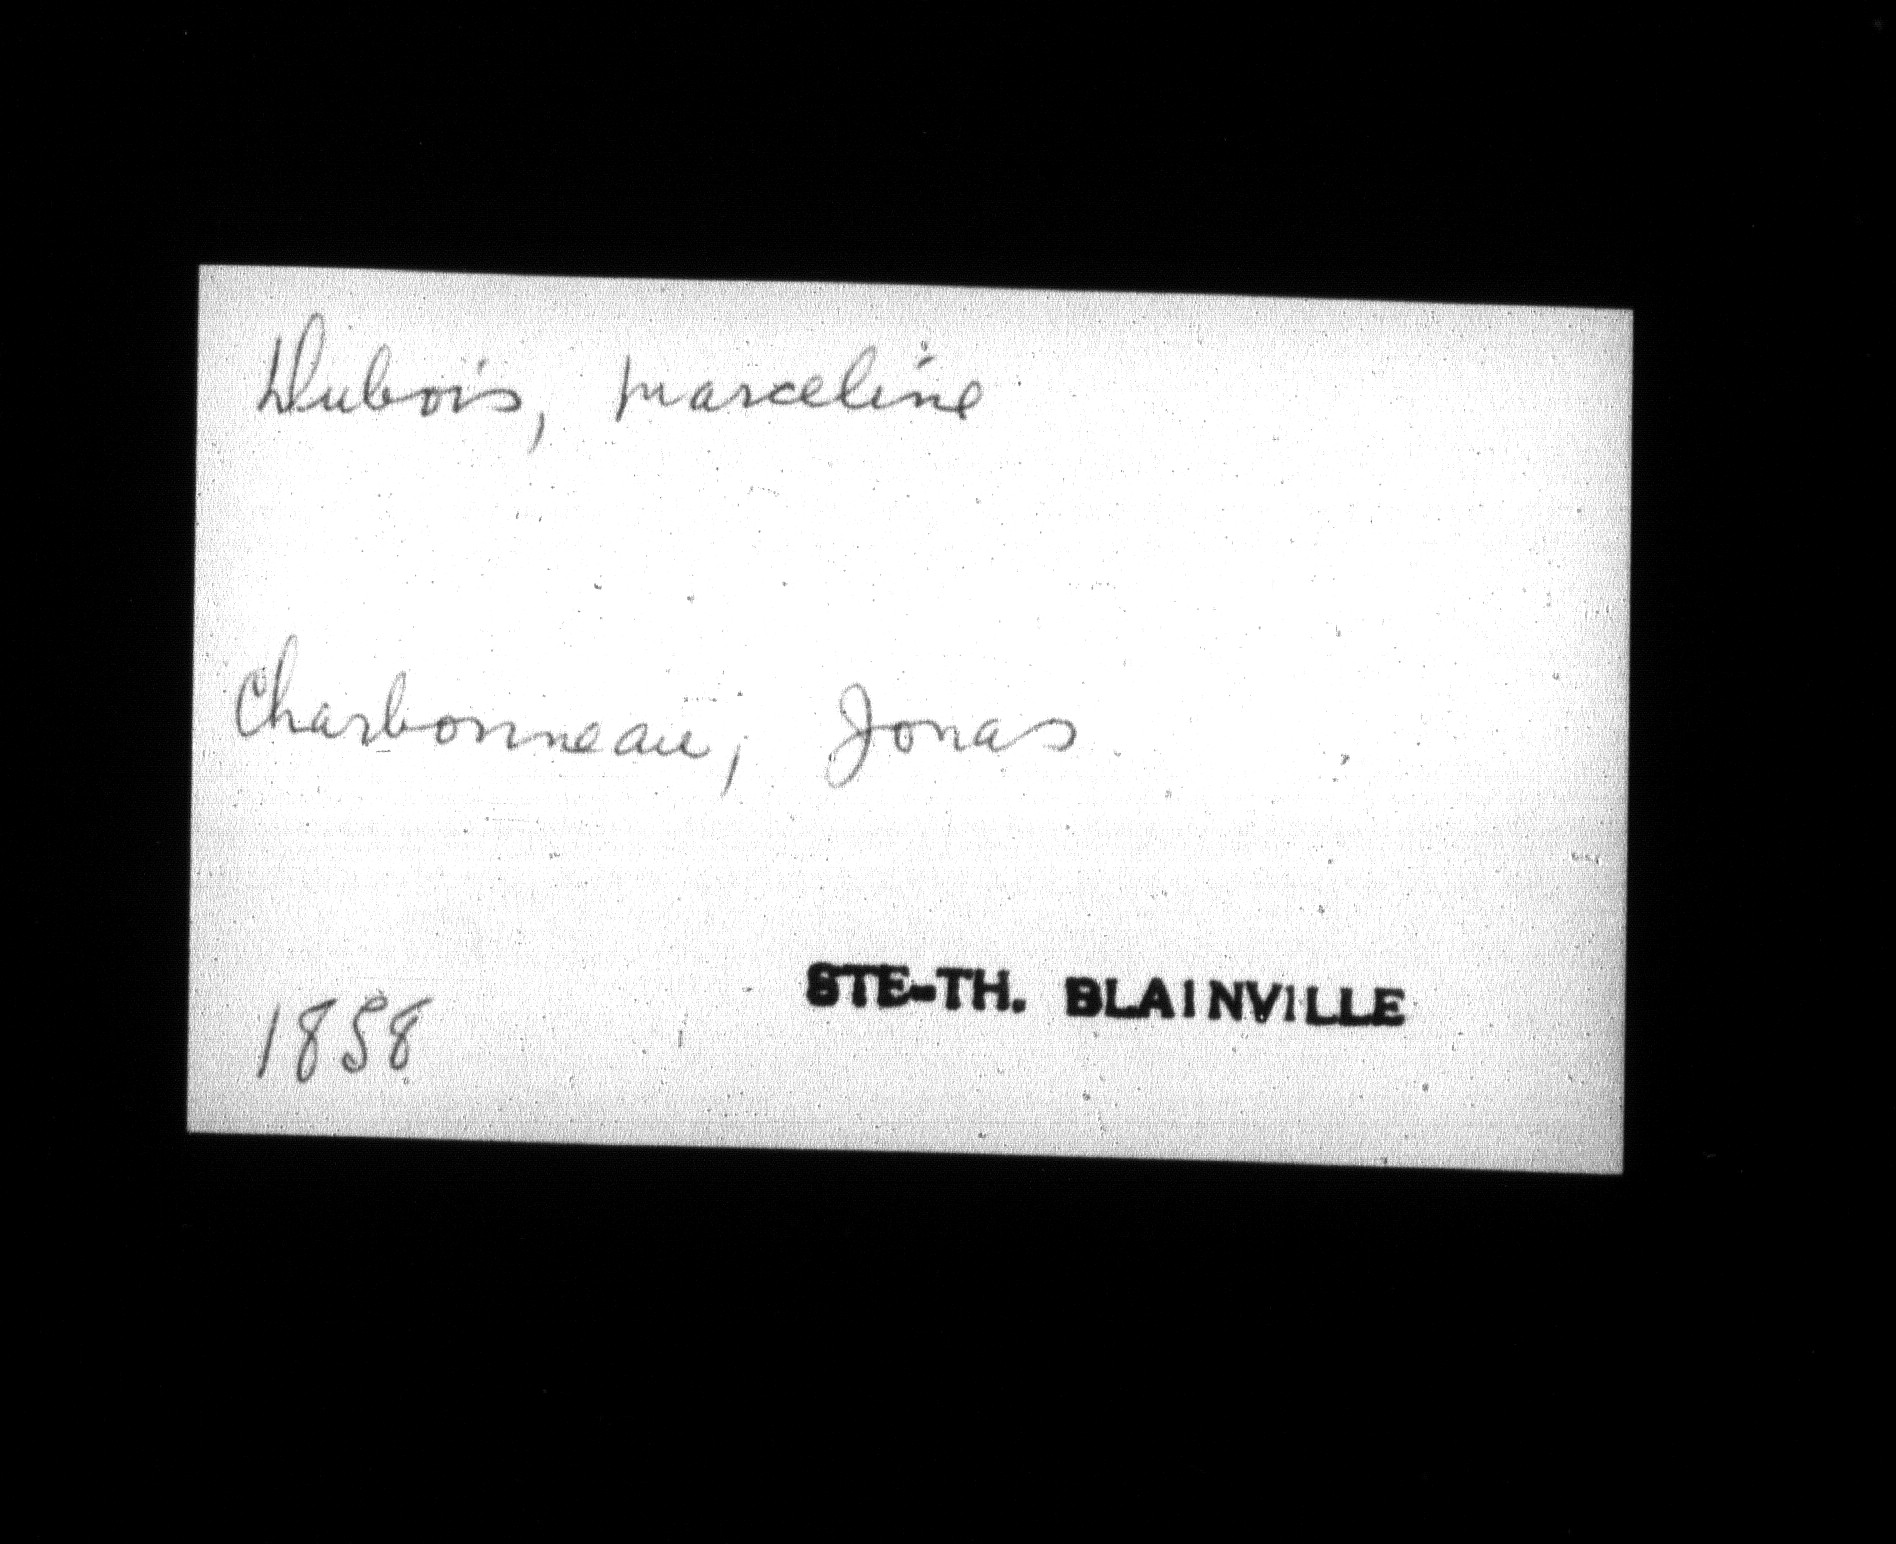 Dubois, Marceline
Charbonneau, Jonas
1858 STE-TH. BLAINVILLE